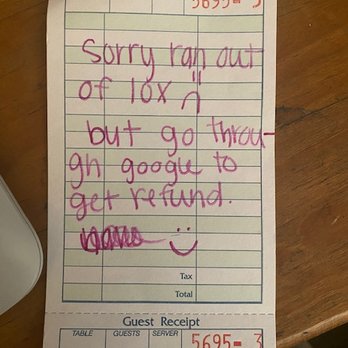 5695- 3
Sorry ran out
of lox :(
but go throu-
gh google to
get refund.
:)
Tax
Total
Guest Receipt
TABLE GUESTS SERVER
5695- 3